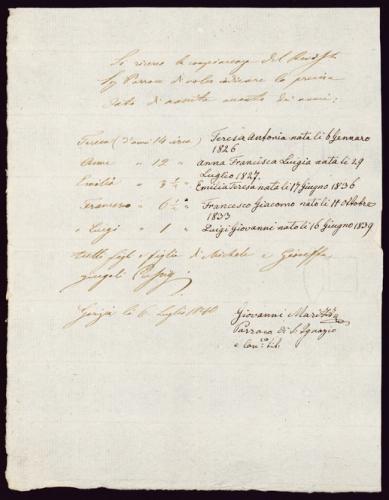 Si ricerca la compiacenza del Revd
Sig. Parroco di voler indicare la precisa
data di nascita quanto dei nomi:
Teresa (d'anni 14 circa) Teresa Antonia nata li 6 Gennaro
1826
Anna " 12 " Anna Francisca Luigia nata li 29
Luglio 1827.
Emilia " 3½ " Emilia Teresa nata li 17 Giugno 1836
Francesco " 6½ " Francesco Giacomo nato li 11 Ottobre
1833
e Luigi " 1 " Luigi Giovanni nato li 16 Giugno 1839
tutti figli e figlie di Michele e Gioseffa
jugali
li 6 Luglio 1840
Giovanni
Parroco di S. Ignazio
e